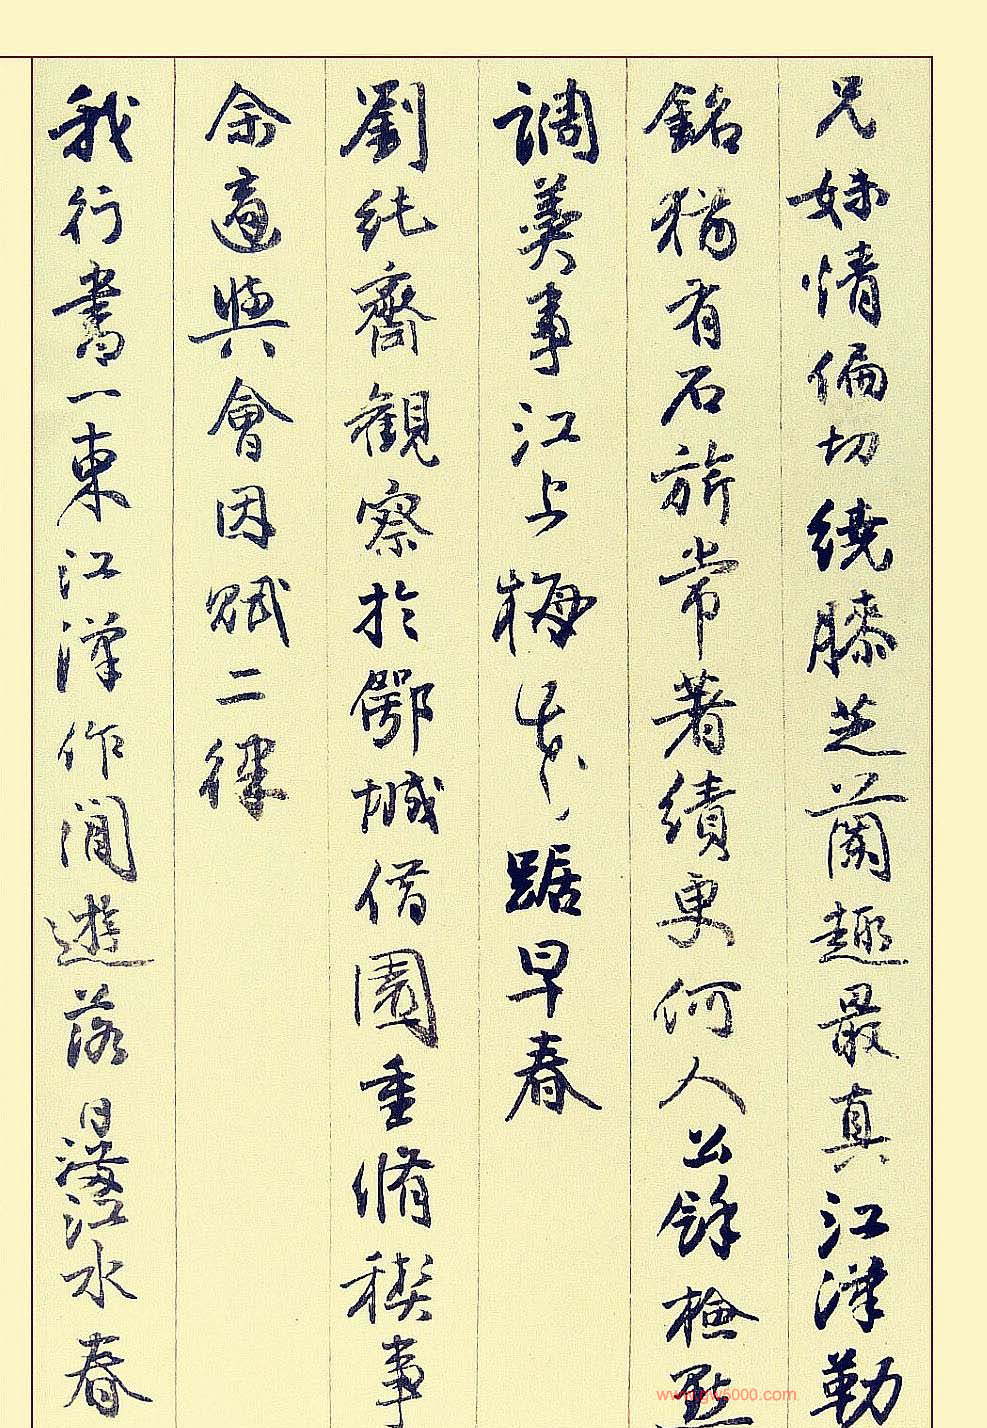 兄妹情偏切繞膝芝蘭趣最真江漢勒
銘猶有石旂常著績更何人公餘檢點
調羹事江上梅花踞早春
劉純齋觀察於鄂城借園重脩稧事
余適與會因賦二律
我行書一束江漢作閒遊落日漾江水春
www.gw5000.com